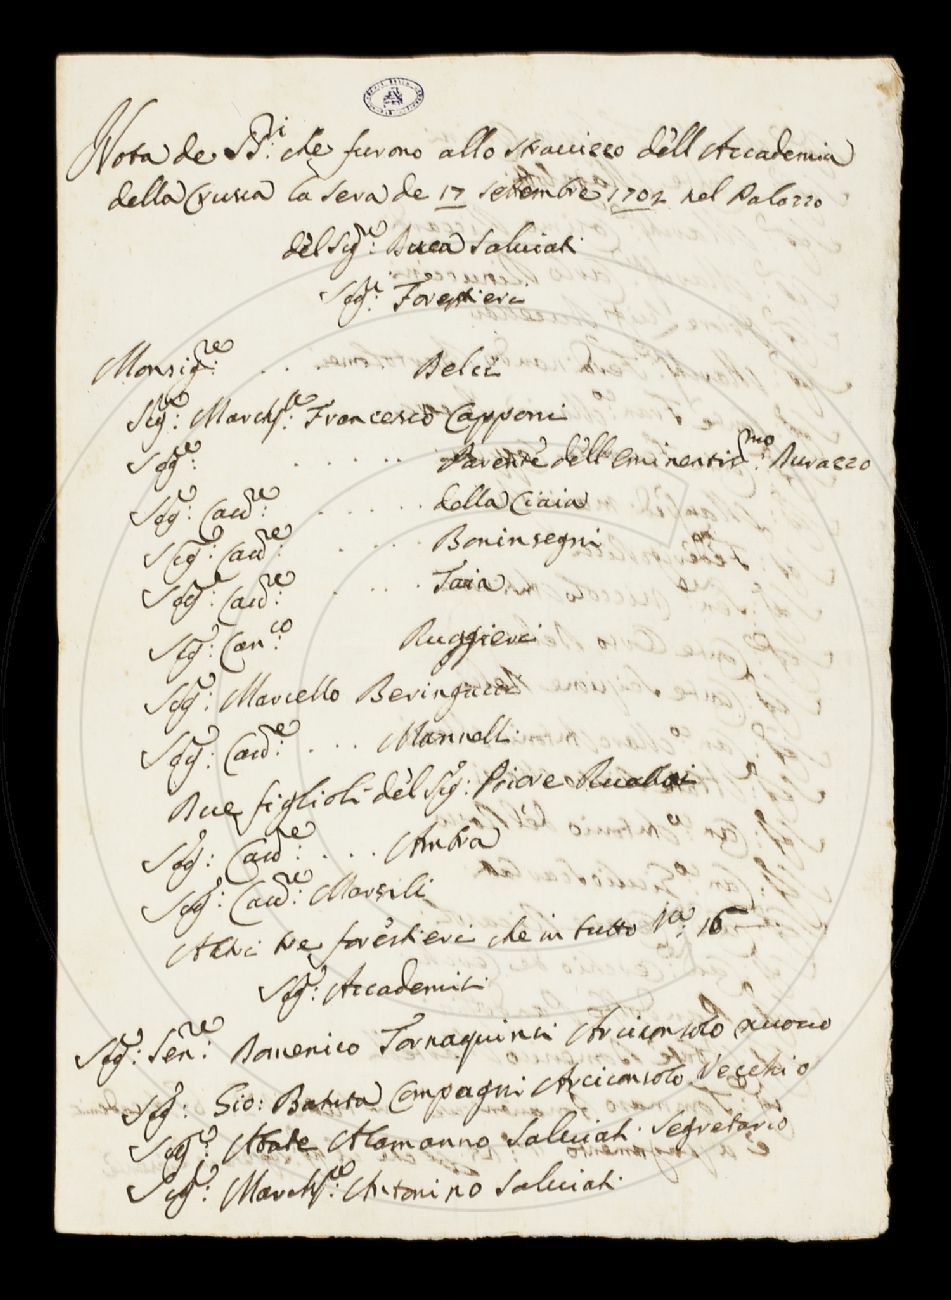 Nota de SS.ri che furono allo stravizzo dell Accademia
della Crusca la sera de 17 settembre 1702 nel Palazzo
del Sig.re Duca Salviati
Sigg.ri Forestieri
Monsig.re . . . Belci
Sig.re March.se Francesco Capponi
Sig.re . . . . . Parente dell Eminentis.mo Durazzo
Sig.re Cav.re . . . . . della Ciaia
Sig.re Cav.re . . . . Boninsegni
Sig.re Cav.re . . . . Taia
Sig.re Can.co Ruggieri
Sig.re Marcello Beringucci
Sig.re Cav.re . . . Mannelli
Due figlioli del Sig.re Priore Rucellai
Sig.re Cav.re . . . . Ambra
Sig.re Cav.re Marsili
Altri tre forestieri che in tutto N.o 16
Sig.ri Accademici
Sig.re Sen.re Domenico Tornaquinci Arciconsolo nuovo
Sig.re Gio: Batista Compagni Arciconsolo Vecchio
Sig.re Abate Alamanno Salviati Segretario
Sig.re March.se Antonino Salviati